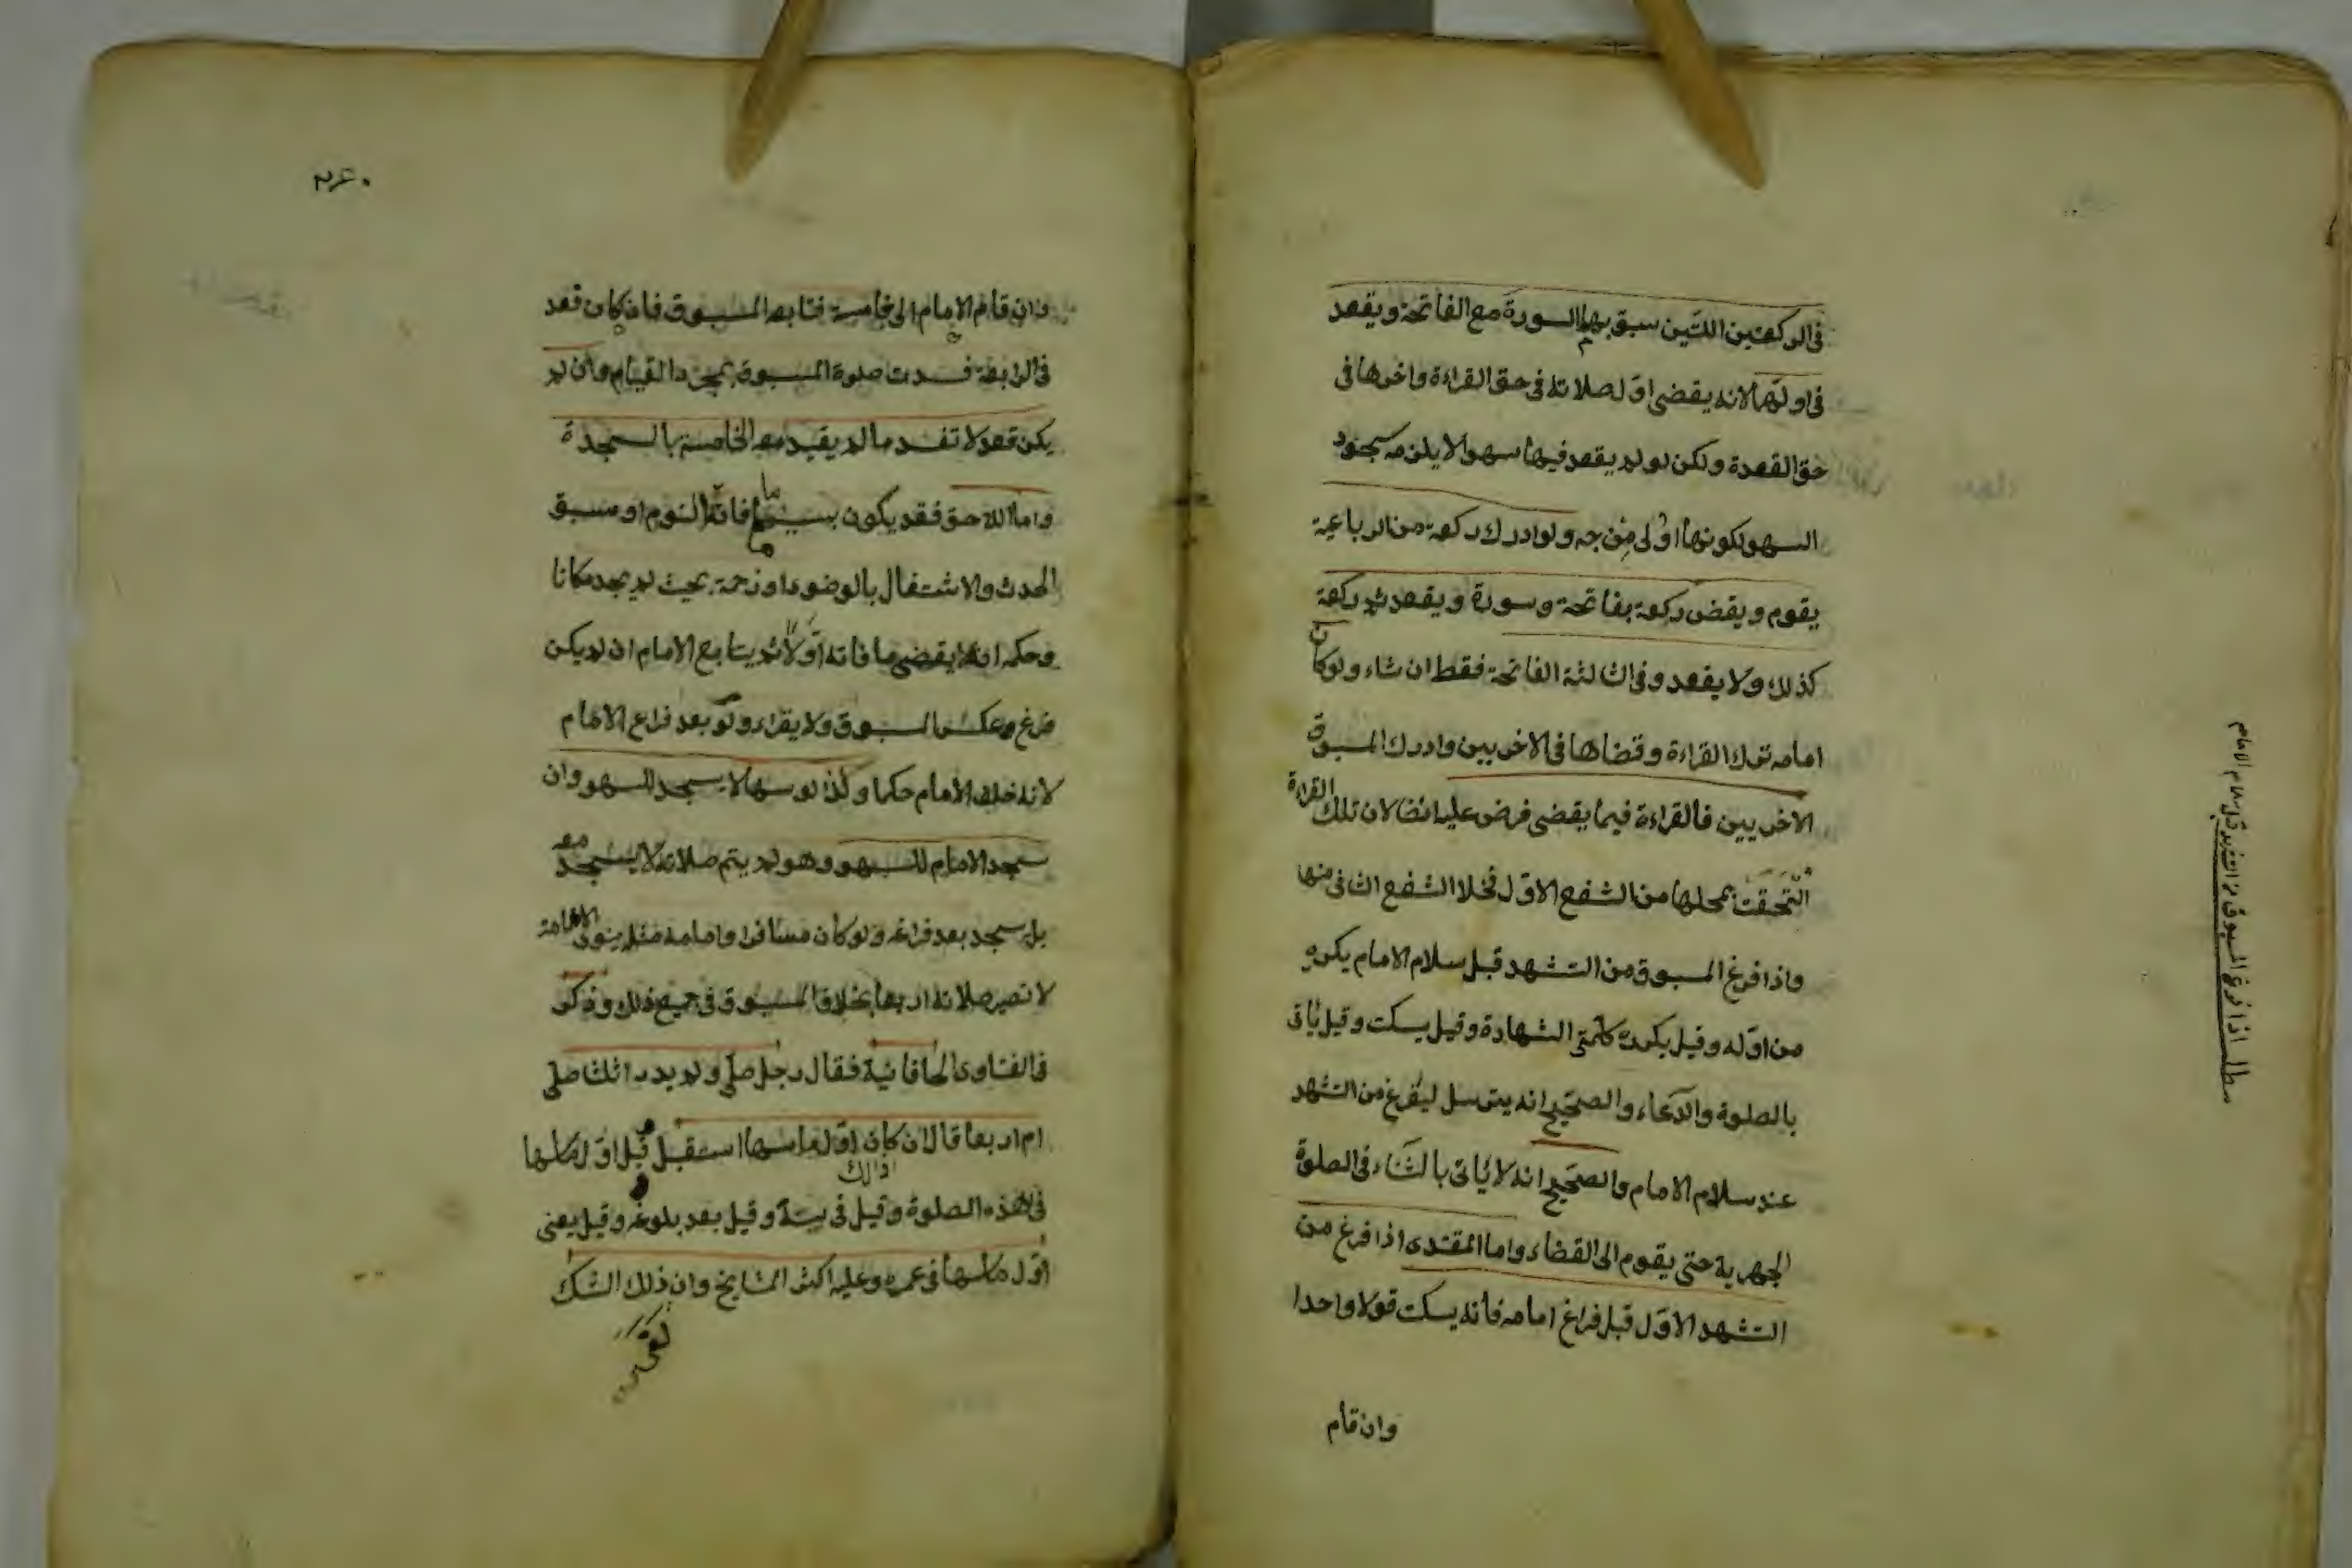 في الركعتين اللتين سبق بهما السورة مع الفاتحة ويقعد
في اولهما لانه يقضى اوّل صلاته في حق القراءة واخرها في
حق القعدة ولكن لو لم يقعد فيها سهوا لا يلزمه سجود
السهو لكونها اولى من وجه ولو ادرك ركعة من الرباعية
يقوم ويقضى ركعة بفاتحة وسورة ويقعد ثم ركعة
كذلك ولا يقعد وفي الثالثة الفاتحة فقط ان شاء ولو كان
امامه ترك القراءة وقضاها في الاخريين وادرك المسبوق
الاخريين فالقراءة فيما يقضى فرض عليه ايضا لان تلك القراءة
التحقت بمحلها من الشفع الاوّل فخلا الشفع الثاني منها
واذا فرغ المسبوق من التشهد قبل سلام الامام يكرره
من اوّله وقيل يكرر كلمتي الشهادة وقيل يسكت وقيل يأتى
بالصلوة والدّعاء والصحيح انه يترسل ليفرغ من التشهد
عند سلام الامام والصحيح انه لا يأتى بالثّناء في الصلوة
الجهرية حتى يقوم الى القضاء واما المقتدى اذا فرغ من
التشهد الاوّل قبل فراغ امامه فانه يسكت قولا واحدا
وان قام
مطلب اذا فرغ المسبوق من التشهد قبل سلام الامام
٢٤٠
وان قام الامام الى خامسة فتابعه المسبوق فان كان قعد
في الرابعة فسدت صلوة المسبوق بمجرد القيام وان لم
يكن قعد لا تفسد ما لم يقيد معه الخامسة بالسجدة
واما اللاحق فقد يكون بسبب ما فاته النوم او سبق
الحدث والاشتغال بالوضوء او زحمة بحيث لم يجد مكانا
وحكمه انه يقضى ما فاته اوّلا ثم يتابع الامام ان لم يكن
فرغ وعكسه المسبوق ولا يقراء ولو بعد فراغ الامام
لانه خلف الامام حكما وكذا لو سها لا يسجد للسهو وان
سجد الامام للسهو وهو لم يتم صلاته لا يسجد معه
بل يسجد بعد فراغه ولو كان مسافرا وامامه مثله ينوى الاقامة
لا تصير صلاته اربعا بخلاف المسبوق في جميع ذلك وذكر
في الفتاوى الخاقانية فقال رجل صلى ولم يدر اثلثا صلى
ام اربعا قال ان كان اوّل ما سها استقبل قيل اوّل ما سها
في هذه الصلوة وقيل في سنة وقيل بعد بلوغه وقيل يعنى
اوّل ما سها في عمره وعليه اكثر المشايخ وان ذلك الشك